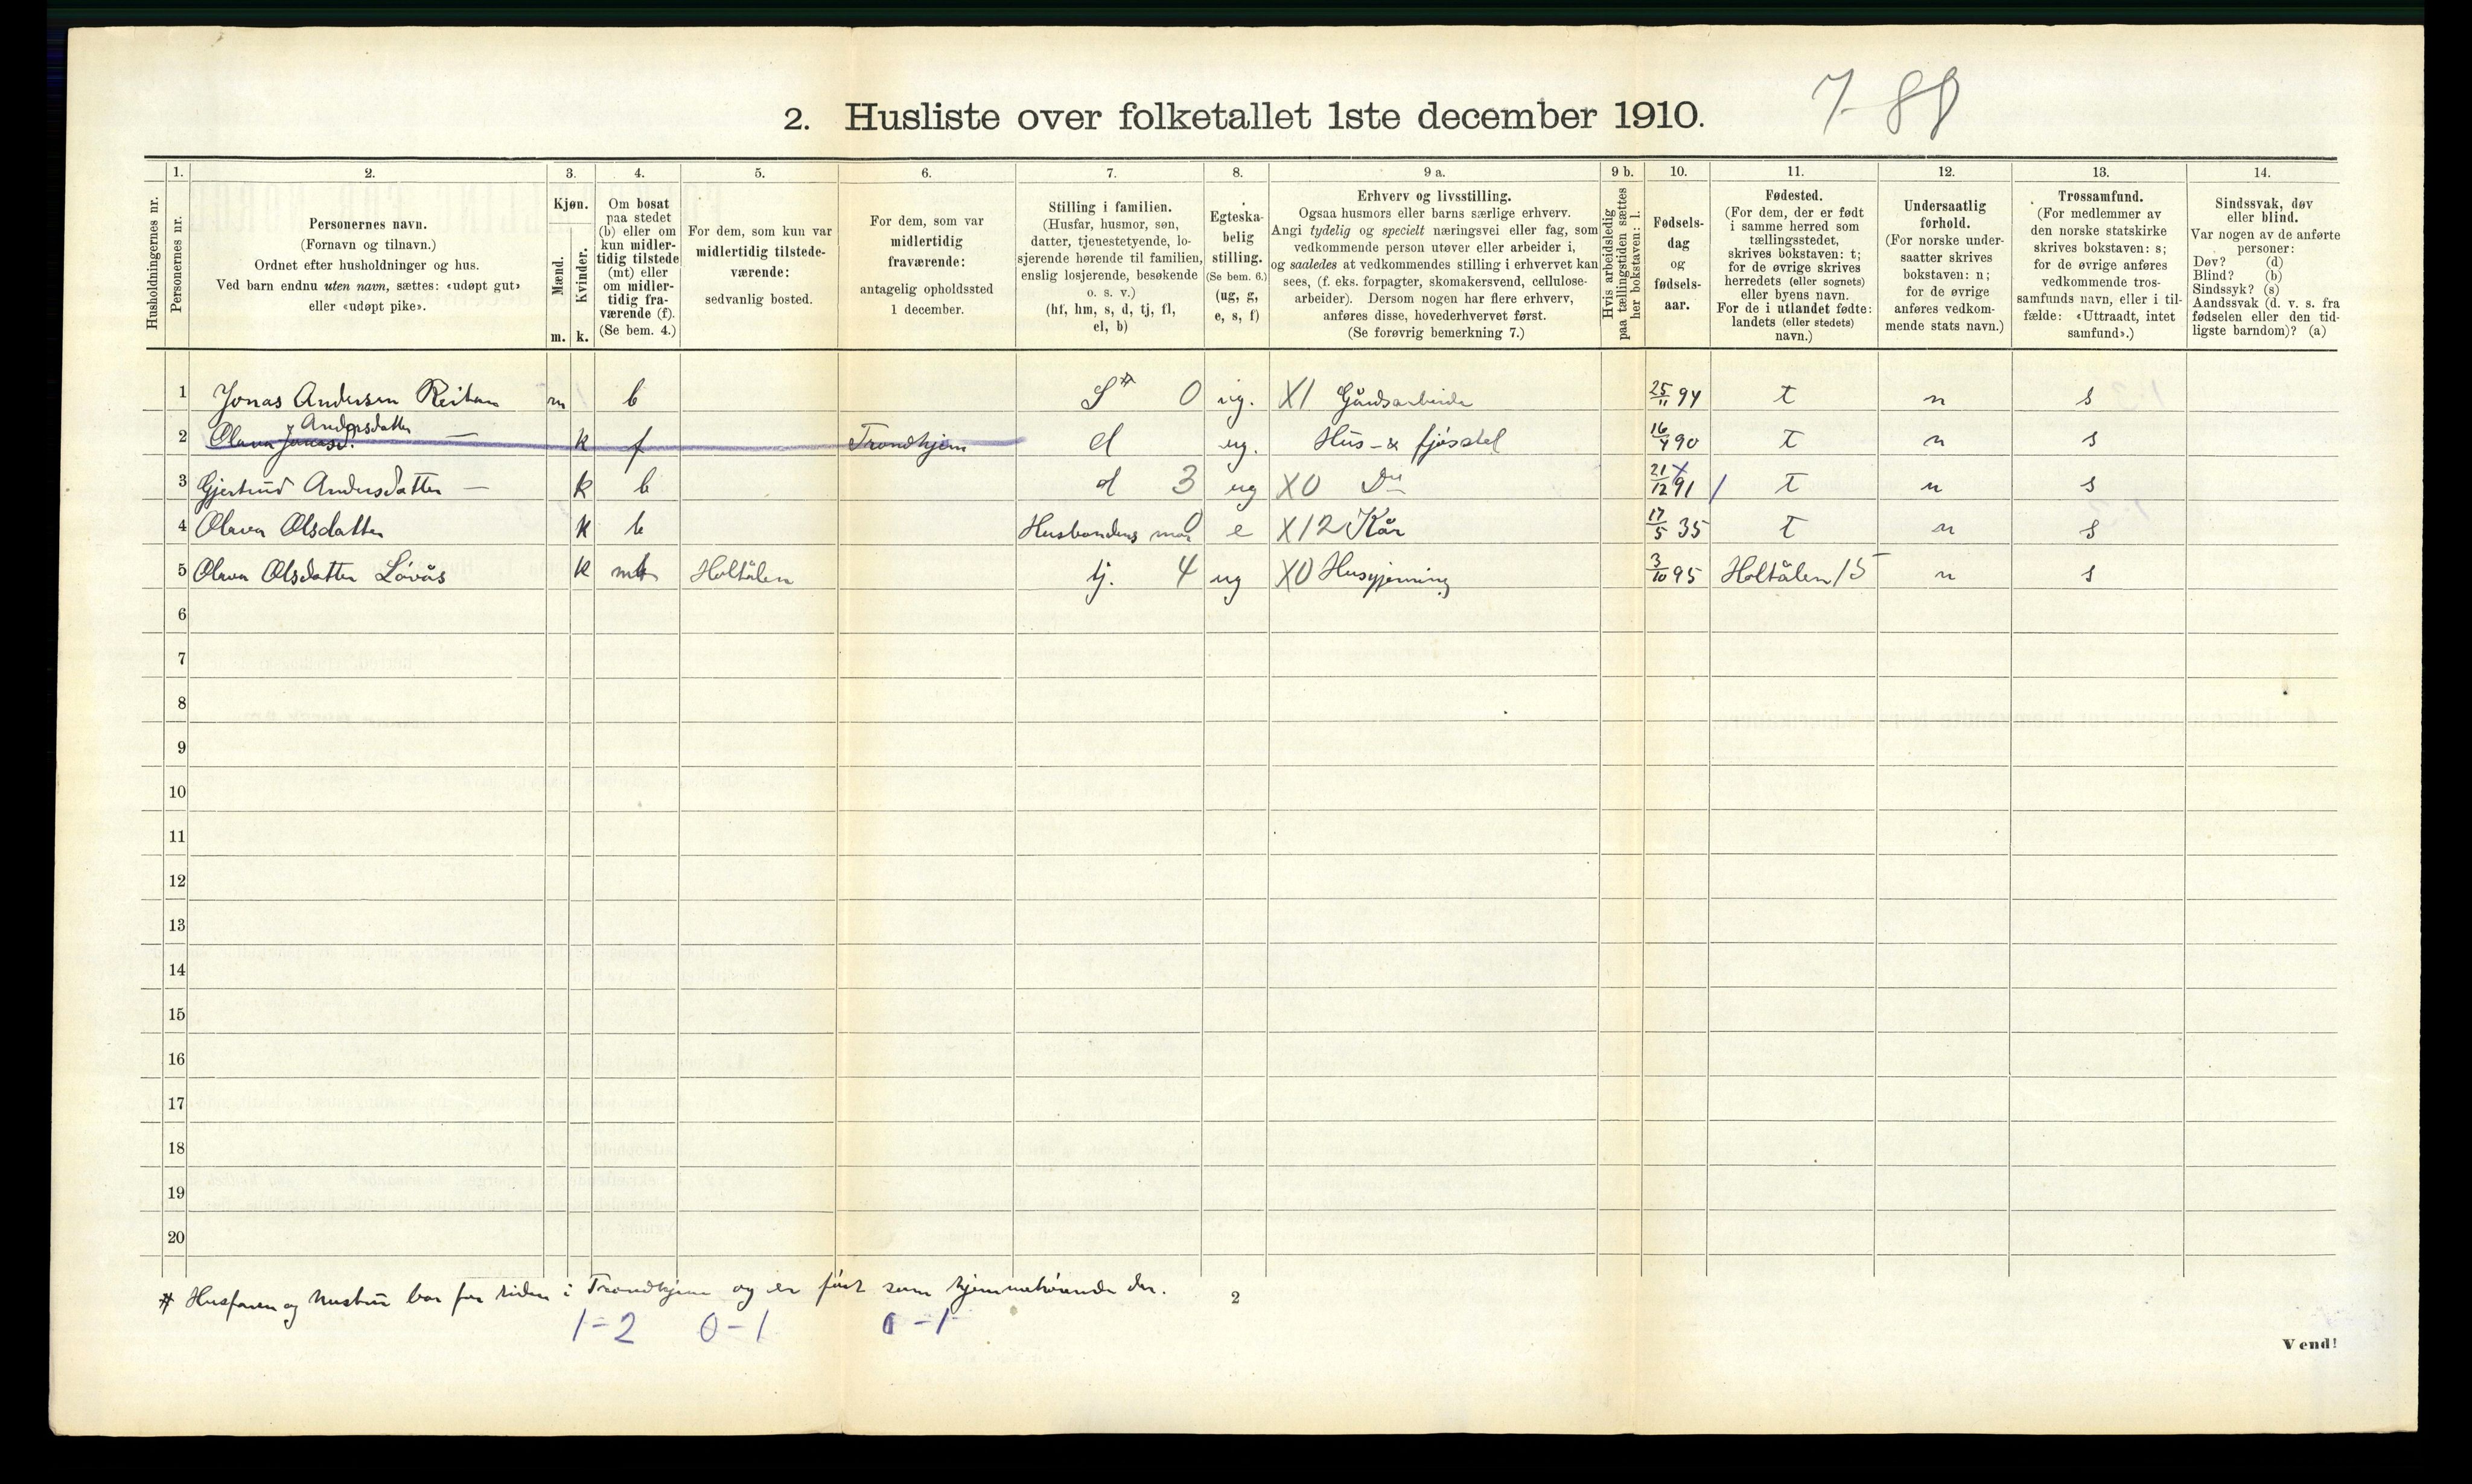 7-88
2. Husliste over folketallet 1ste december 1910.
Husholdningernes nr.
1. Personernes nr.
2. Personernes navn. (Fornavn og tilnavn.) Ordnet efter husholdninger og hus. Ved barn endnu uten navn, sættes: «udøpt gut» eller «udøpt pike».
3. Kjøn. Mænd. m. Kvinder. k.
4. Om bosat paa stedet (b) eller om kun midlertidig tilstede (mt) eller om midlertidig fraværende (f). (Se bem. 4.)
5. For dem, som kun var midlertidig tilstedeværende: sedvanlig bosted.
6. For dem, som var midlertidig fraværende: antagelig opholdssted 1 december.
7. Stilling i familien. (Husfar, husmor, søn, datter, tjenestetyende, losjerende hørende til familien, enslig losjerende, besøkende o. s. v.) (hf, hm, s, d, tj, fl, el, b)
8. Egteskabelig stilling. (Se bem. 6.) (ug, g, e, s, f)
9 a. Erhverv og livsstilling. Ogsaa husmors eller barns særlige erhverv. Angi tydelig og specielt næringsvei eller fag, som vedkommende person utøver eller arbeider i, og saaledes at vedkommendes stilling i erhvervet kan sees, (f. eks. forpagter, skomakersvend, cellulosearbeider). Dersom nogen har flere erhverv, anføres disse, hovederhvervet først. (Se forøvrig bemerkning 7.)
9 b. Hvis arbeidsledig paa tællingstiden sættes her bokstaven: l.
10. Fødselsdag og fødselsaar.
11. Fødested. (For dem, der er født i samme herred som tællingsstedet, skrives bokstaven: t; for de øvrige skrives herredets (eller sognets) eller byens navn. For de i utlandet fødte: landets (eller stedets) navn.)
12. Undersaatlig forhold. (For norske undersaatter skrives bokstaven: n; for de øvrige anføres vedkommende stats navn.)
13. Trossamfund. (For medlemmer av den norske statskirke skrives bokstaven: s; for de øvrige anføres vedkommende trossamfunds navn, eller i tilfælde: «Uttraadt, intet samfund».)
14. Sindssvak, døv eller blind. Var nogen av de anførte personer: Døv? (d) Blind? (b) Sindssyk? (s) Aandssvak (d. v. s. fra fødselen eller den tidligste barndom)? (a)
1 Jonas Andersen Reitan m b S# 0 ug. X1 Gårdsarbeide 25/11 94 t n s
2 Olava Jonasd. Andersdatter — k f Trondhjem d ug. Hus- & fjøsstel 16/4 90 t n s
3 Gjertrud Andersdatter — k b d 3 ug X0 Do 21/12 91 / t n s
4 Olava Olsdatter k b Husbondens mor 0 e X12 Kår 17/5 35 t n s
5 Olava Olsdatter Løvås k mt Holtålen tj. 4 ug X0 Husgjerning 3/10 95 Holtålen 15 n s
6
7
8
9
10
11
12
13
14
15
16
17
18
19
20
# Husfaren og hustru bor for tiden i Trondhjem og er ført som hjemmehørende der.
1-2 0-1 0-1
2
Vend!